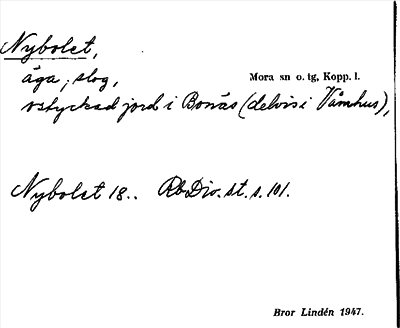 Nybolet,
äga; slog,
Mora sn o. tg, Kopp. l.
ostyckad jord i Bonäs (delvis i Våmhus),
Nybolet 18.. RbDiv. st. s. 101.
Bror Lindén 1947.